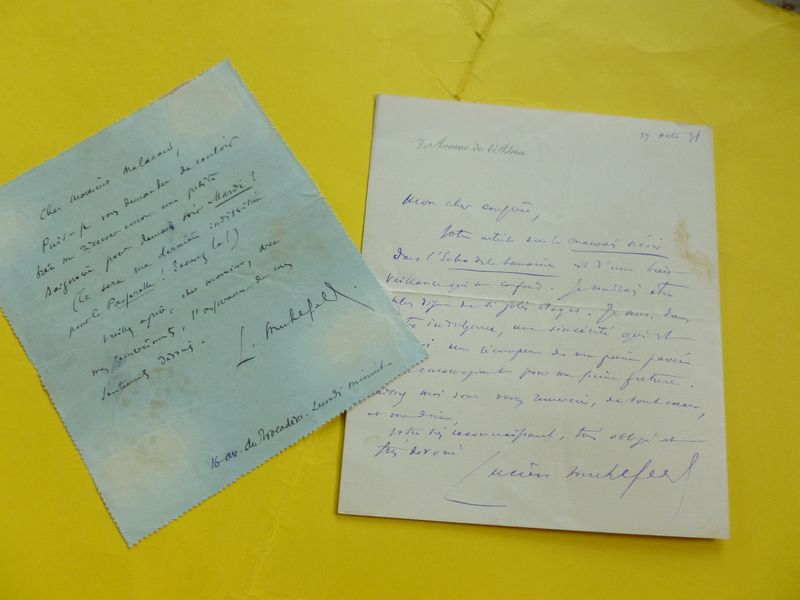 Cher Monsieur
Puis-je vous demander de vouloir
bien me réserver encore une petite
pour demain soir Mardi ?
(Ce sera ma dernière indiscrétion
pour la Passerelle !
Veuillez agréer, cher monsieur, avec
mes remerciements, l'expression de mes
sentiments
L. Muhlfeld.
16 av. du Trocadéro. Lundi minuit.
7, Avenue de l'Alma
27 octo
Mon cher confrère,
Votre article sur le mauvais désir
dans l'Echo de la Semaine est d'une bien-
veillance qui me confond. Je voudrais être
plus digne de si jolis éloges. Je sens, dans
votre indulgence, une sincérité qui est
une récompense de ma peine passée
encouragement pour ma peine future.
moi vous remercier, de tout coeur,
et me dire
votre très reconnaissant, très obligé et
très dévoué
Lucien Muhlfeld